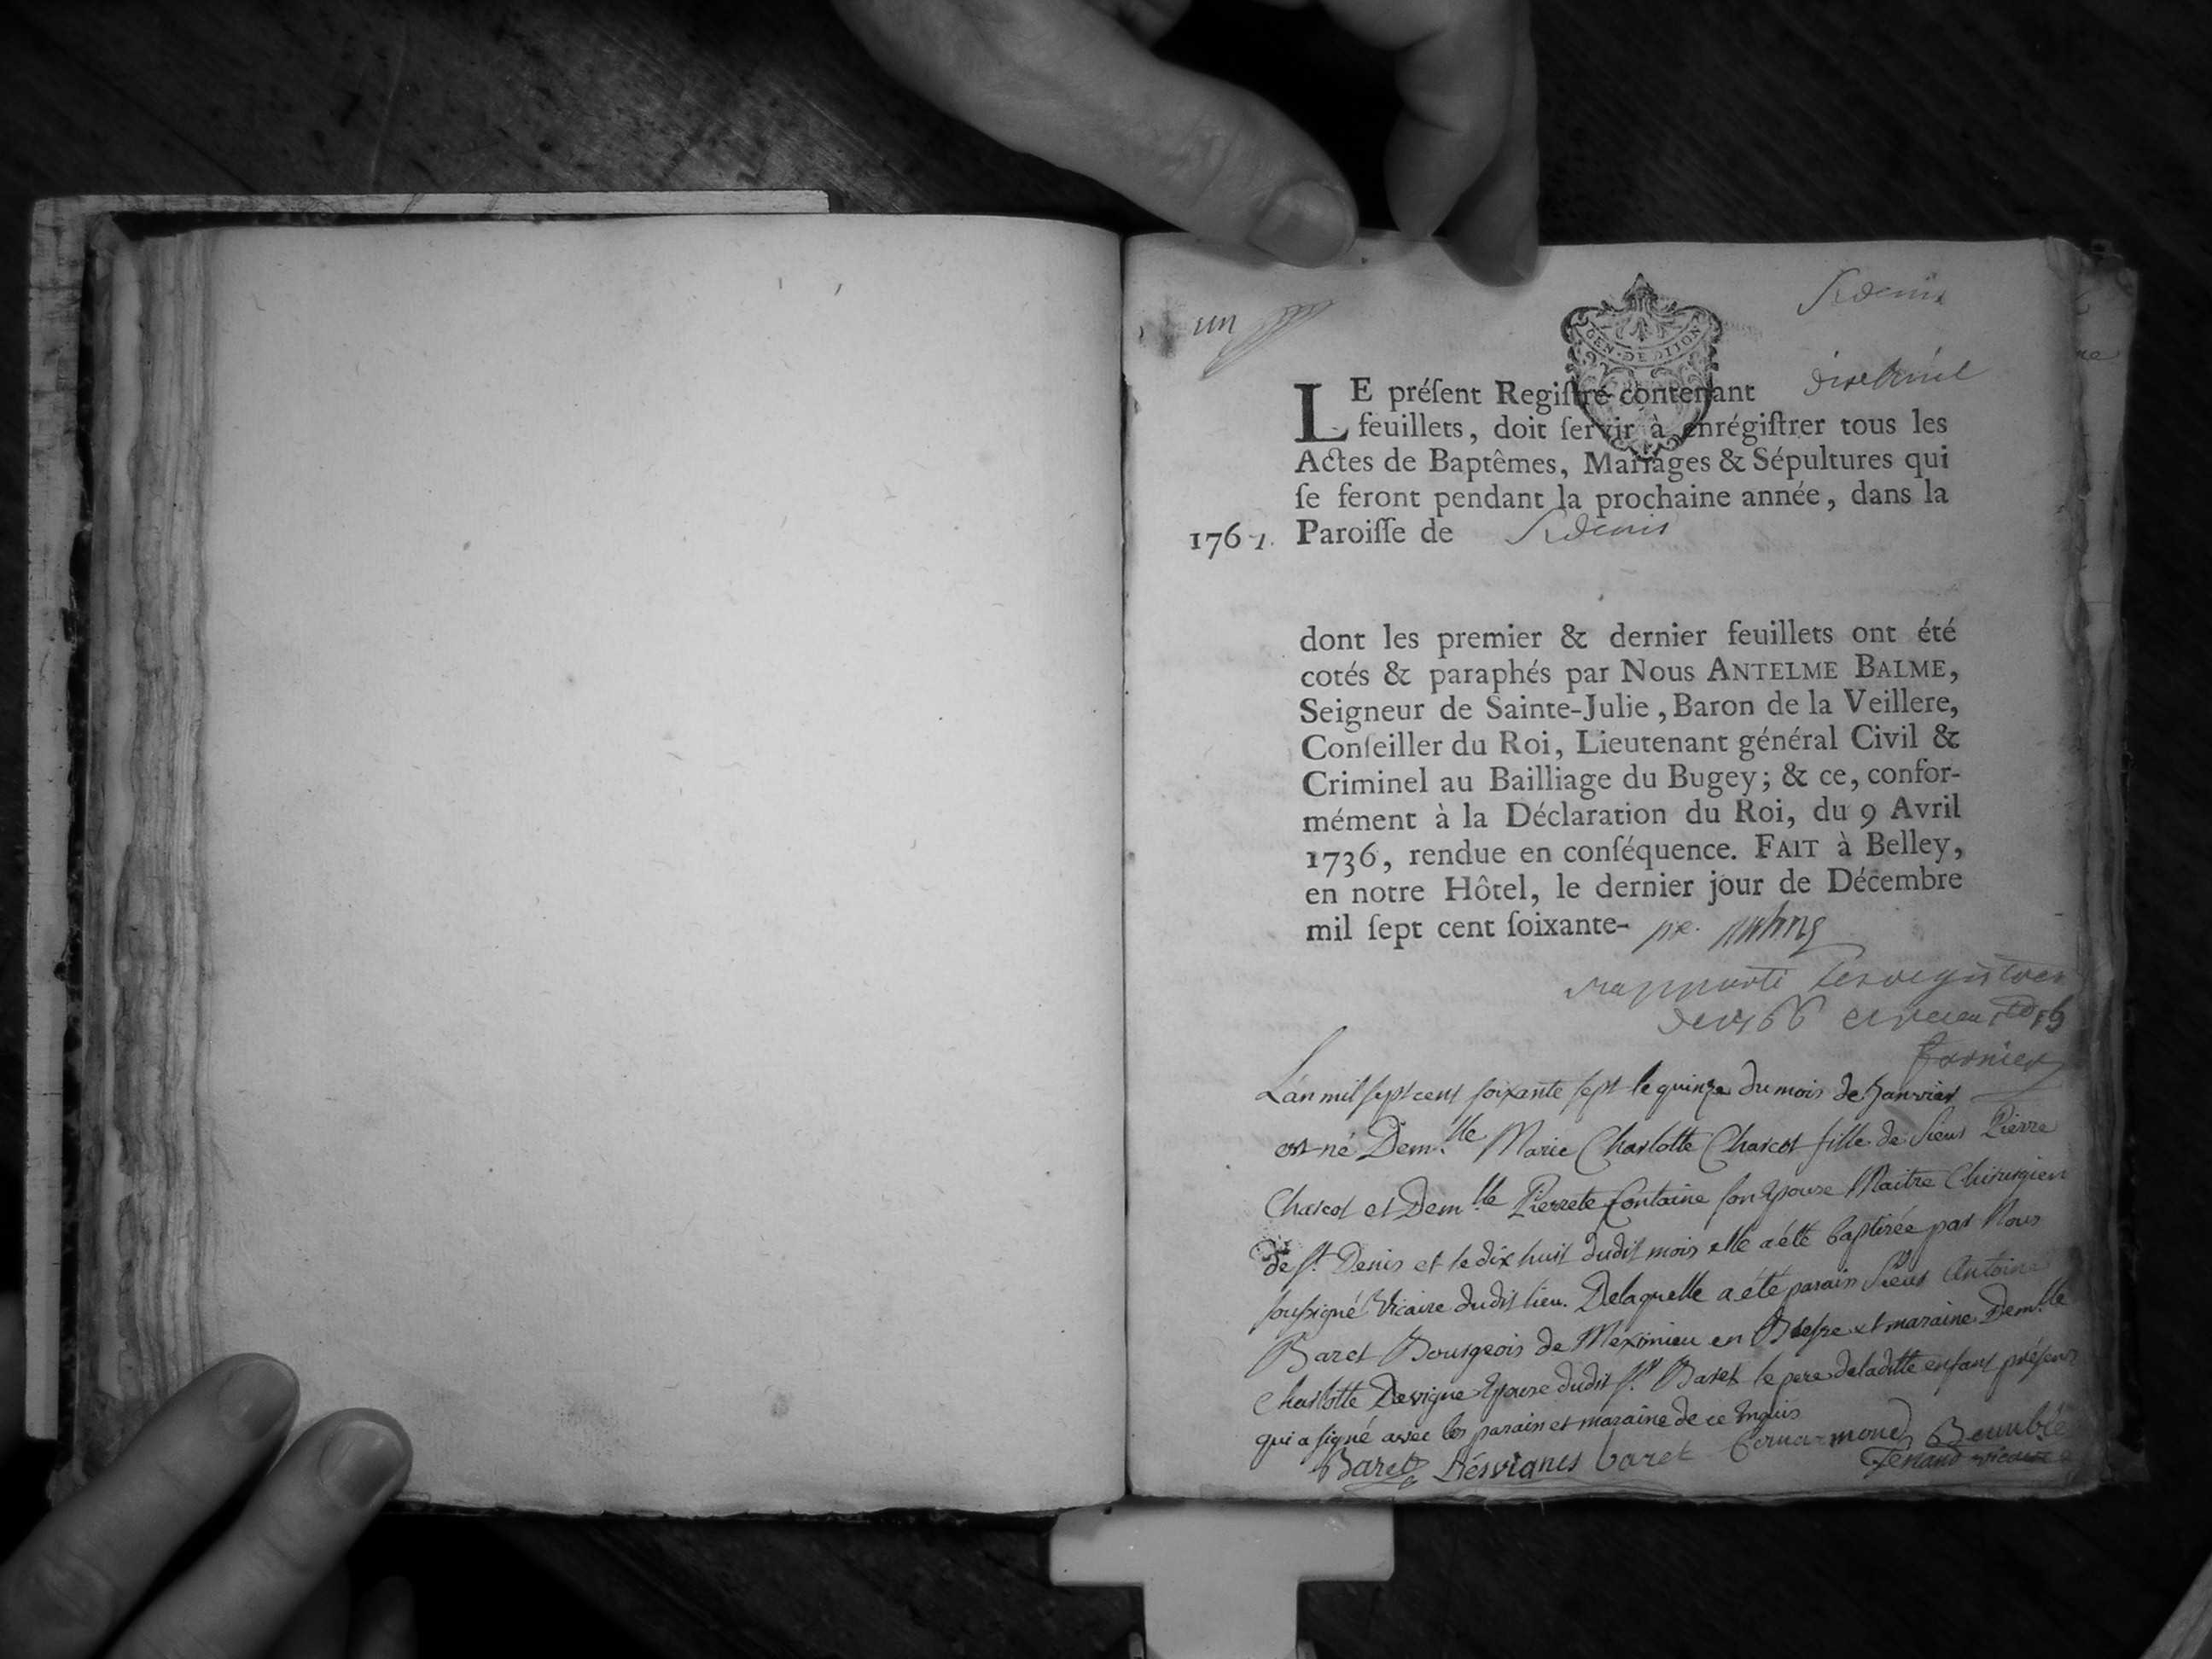 un
St denis
GEN. DE DIJON
LE préſent Regiſtre contenant dixhuit
feuillets, doit ſervir à enrégiſtrer tous les
Actes de Baptêmes, Mariages & Sépultures qui
ſe feront pendant la prochaine année, dans la
1767. Paroiſſe de St denis
dont les premier & dernier feuillets ont été
cotés & paraphés par Nous ANTELME BALME,
Seigneur de Sainte-Julie, Baron de la Veillere,
Conſeiller du Roi, Lieutenant général Civil &
Criminel au Bailliage du Bugey; & ce, confor-
mément à la Déclaration du Roi, du 9 Avril
1736, rendue en conſéquence. FAIT à Belley,
en notre Hôtel, le dernier jour de Décembre
mil ſept cent ſoixante-
rapporté les registres
de 1766
L'an mil sept cent soixante sept le quinze du mois de Janvier
est né Dem.lle Marie Charlotte Charcot fille de Sieur Pierre
Charcot et Dem.lle Pierrete fontaine son Epouse Maitre Chirurgien
de St. Denis et le dix huit dudit mois elle a été baptisée par Nous
soussigné Vicaire dudit lieu. De laquelle a été parain Sieur Antoine
Baret Bourgeois de Meximieu en Bresse et maraine Dem.lle
Charlotte Devigne Epouse dudit Sr. Baret le pere de la ditte enfant présent
qui a signé avec les parain et maraine de ce Enquis
Baret Désvignes baret
vicaire